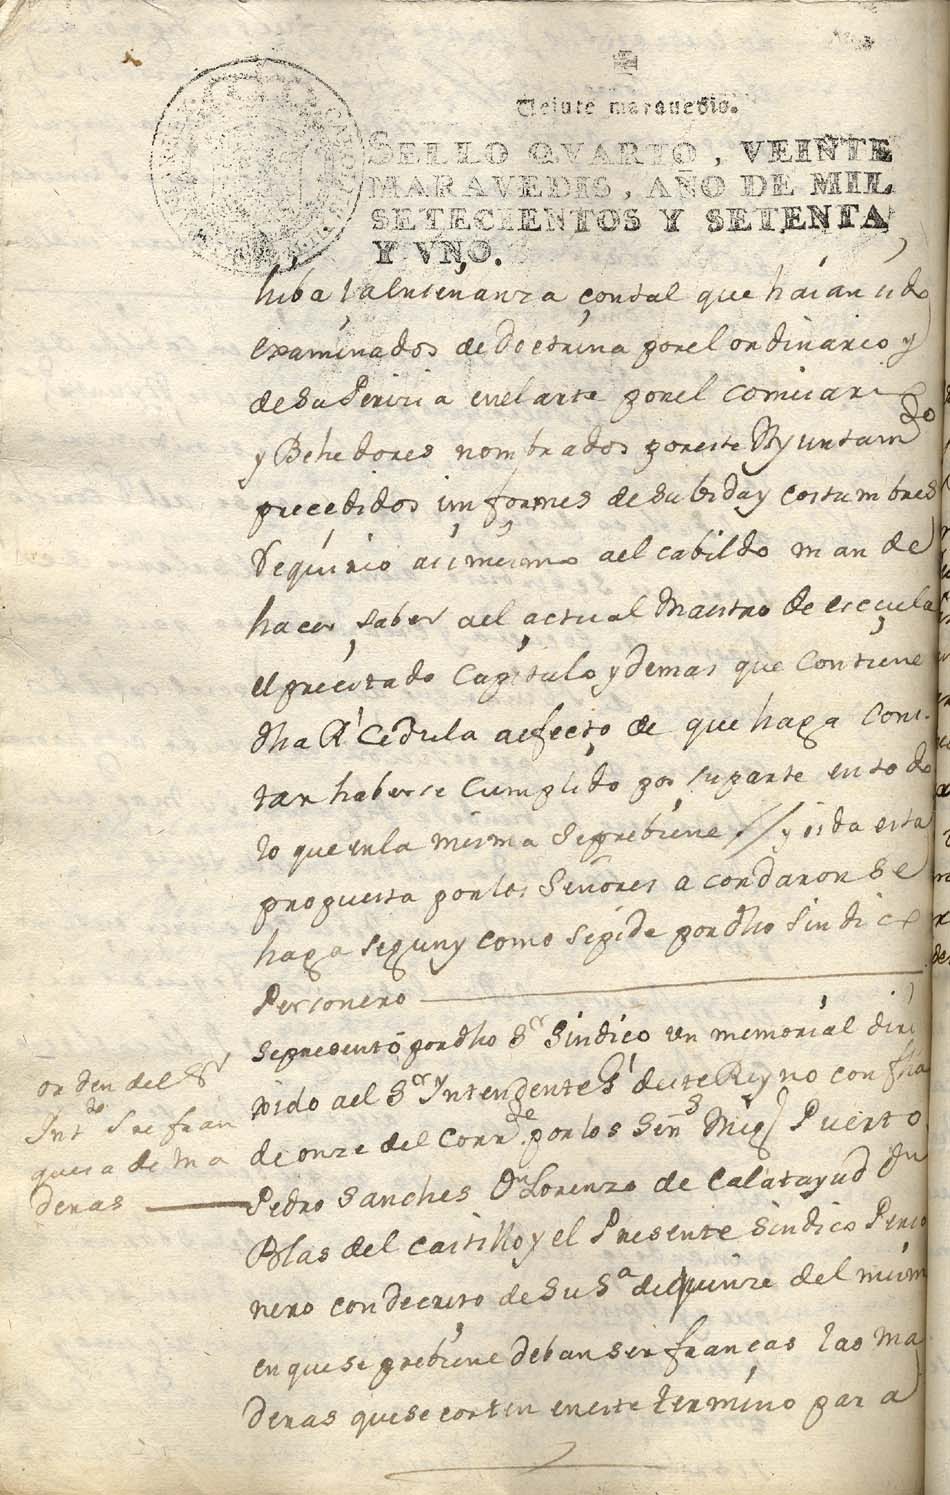 Veinte maravedis.
SELLO QVARTO, VEINTE
MARAVEDIS, AÑO DE MIL
SETECIENTOS Y SETENTA
Y VNO.
hiba la ensenanza con tal que haian sido
examinados de doctrina por el ordinario y
de su Perizia en el arte por el comisario
y Behedores nombrados por este Ayuntamdo
precedidos imformes de su bida y costumbres
Requirio asimismo ael cabildo mande
hacer saber ael actual Maestro de escuela
el precitado Capitulo y demas que contiene
dha Rl Cedula aefecto de que haga cons-
tar haberse cumplido por su parte en todo
lo que en la misma se prebiene // y oida esta
propuesta por los Señores acordaron se
haga segun y como se pide por dho Sindico
Personero
Se presentó por dho Sr Sindico un memorial diri
xido ael Sor Yntendente Gl de este Reyno con fha
de onze del Corrte por los Sens Migl Puerto
Pedro Sanches Dn Lorenzo de Calatayud Dn
Blas del Castillo y el Presente Sindico Perso
nero con decreto de su Sa de quinze del mism
en que se prebiene deban ser francas las ma
deras que se corten en este termino para
orden del Sr
Intte Sre fran
quesa de ma
deras